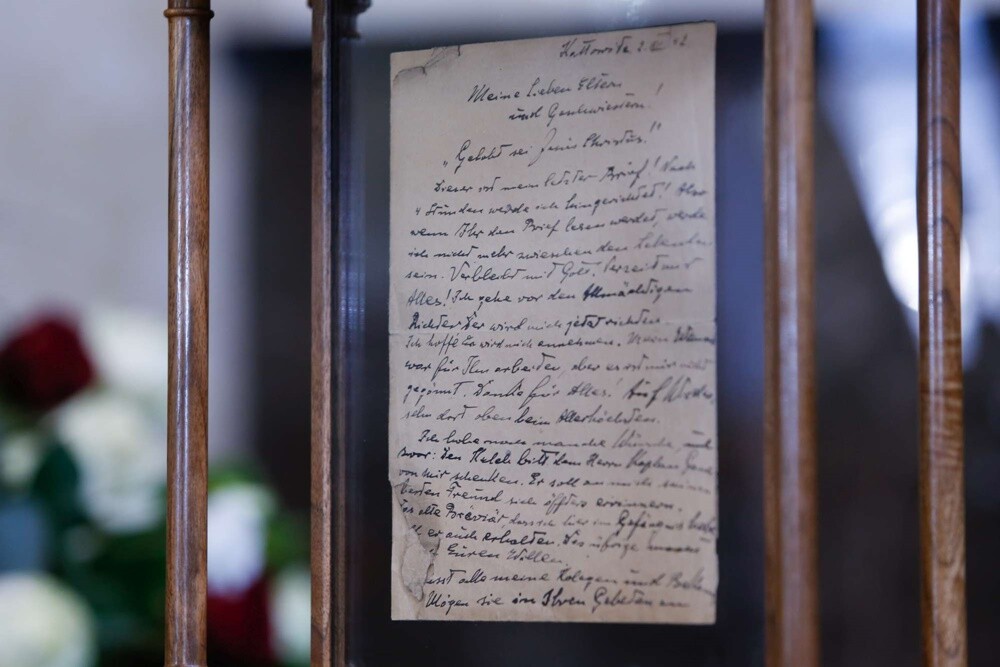 Kattowitz 2 XII 42
Meine Lieben Eltern
und Geschwistern!
"Gelobt sei Jesus Christus!"
Dieser ist mein letzter Brief! Nach
4 Stunden werde ich hingerichtet! Also
wenn Ihr den Brief lesen werdet, werde
ich nicht mehr zwischen den Lebenden
sein. Verbleibt mit Gott. Verzeiht mir
Alles! Ich gehe vor den Allmächtigen
Richter. Der wird mich jetzt richten.
Ich hoffe Er wird mich annehmen. Mein
war für Ihn arbeiten, aber es ist mir nicht
gegönnt. Danke für Alles! Auf Wieder,
sehn dort oben beim Allerhöchsten.
Ich habe noch manche Wünsche, und
zwar: Den Kelch bitt dem Herrn Kaplan
von mir schenken. Er soll an mich seinen
besten Freund sich öffters errinnern.
Das alte Breviär, dass ich hier im Gefängnis
er auch erhalten. Das übrige
Euren Willen
alle meine Kolegen und
Mögen sie in Ihren Gebeten